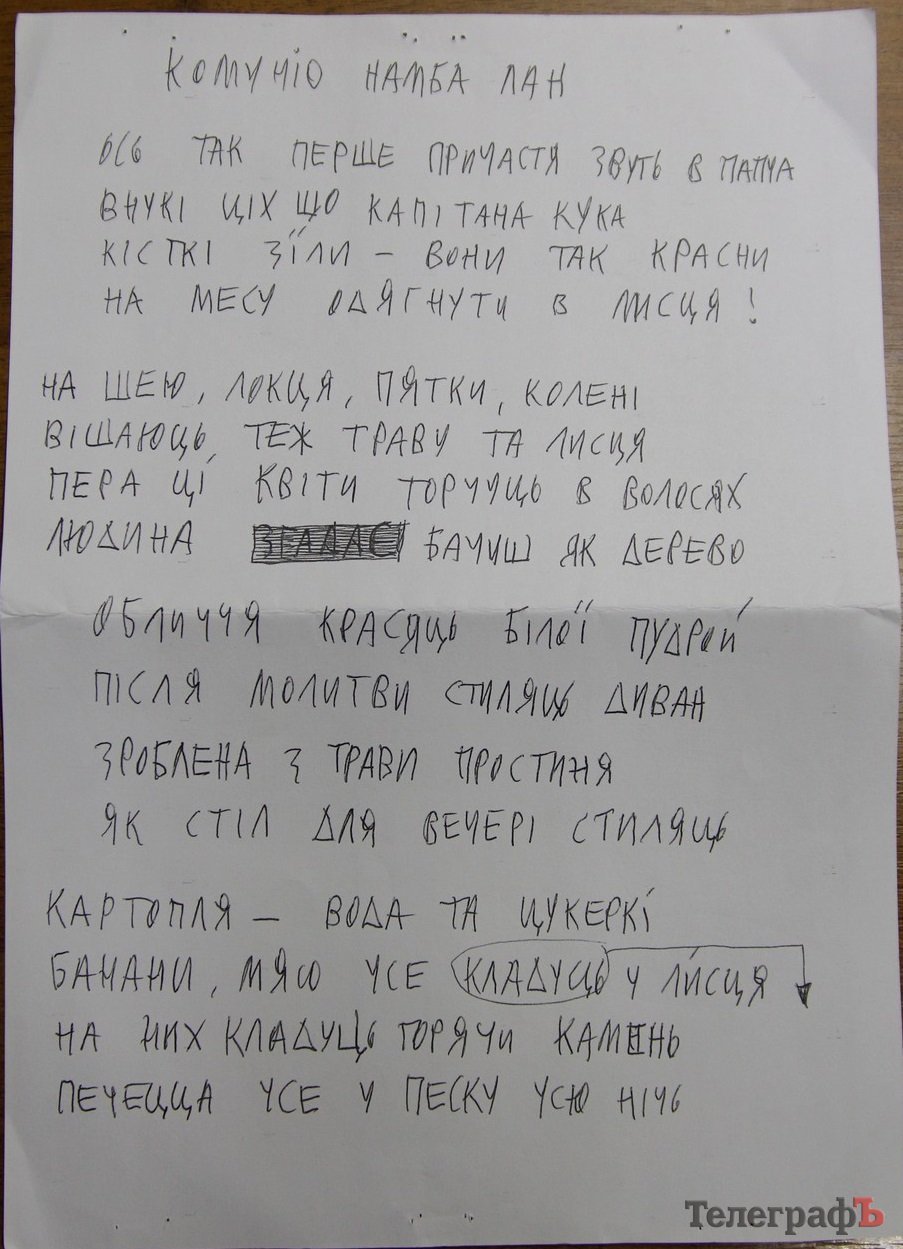 КОМУНІЮ НАМБА ЛАН
ОСЬ ТАК ПЕРШЕ ПРИЧАСТЯ ЗВУТЬ В ПАПУА
ВНУКІ ЦІХ ЩО КАПІТАНА КУКА
КІСТКІ ЗЇЛИ – ВОНИ ТАК КРАСНИ
НА МЕСУ ОДЯГНУТИ В ЛИСЦЯ!
НА ШЕЮ, ЛОКЦЯ, ПЯТКИ, КОЛЕНІ
ВІШАЮЦЬ ТЕЖ ТРАВУ ТА ЛИСЦЯ
ПЕРА ЦІ КВІТИ ТОРЧУЦЬ В ВОЛОСЯХ
ЛЮДИНА БАЧИШ ЯК ДЕРЕВО
ОБЛИЧЧЯ КРАСЯЦЬ БІЛОЇ ПУДРОЙ
ПІСЛЯ МОЛИТВИ СТИЛЯЦЬ ДИВАН
ЗРОБЛЕНА З ТРАВИ ПРОСТИНЯ
ЯК СТІЛ ДЛЯ ВЕЧЕРІ СТИЛЯЦЬ
КАРТОПЛЯ – ВОДА ТА ЦУКЕРКІ
БАНАНИ, МЯСО УСЕ КЛАДУЦЬ У ЛИСЦЯ
НА НИХ КЛАДУЦЬ ГОРЯЧИ КАМІНЬ
ПЕЧЕЦЦА УСЕ У ПЕСКУ УСЮ НІЧЬ
ТелеграфЪ